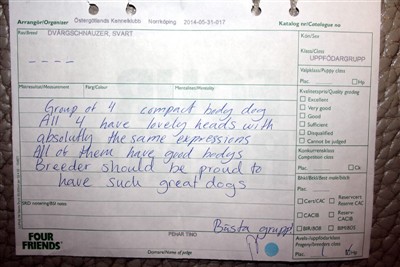 Arrangör/Organiser Östergötlands Kennelklubb Norrköping 2014-05-31-017 Katalog nr/Catalogue no
Ras/Breed DVÄRGSCHNAUZER, SVART
Kön/Sex
Klass/Class
UPPFÖDARGRUPP
Valpklass/Puppy class
Plac: Hp
Färg/Colour
Mentalitet/Mentality
Group of 4 compact body dog
All 4 have lovely heads with
absolutly the same expressions
All of them have good bodys
Breeder should be proud to
have such great dogs
Kvalitetspris/Quality grading
Excellent
Very good
Good
Sufficient
Disqualified
Cannot be judged
Konkurrensklass
Competition class
Plac: CK
Plac:
CACIB
BIR/BOB
BIM/BOS
Bästa grupp!
FOUR
FRIENDS
PEHAR TINO
Domare/Name of judge